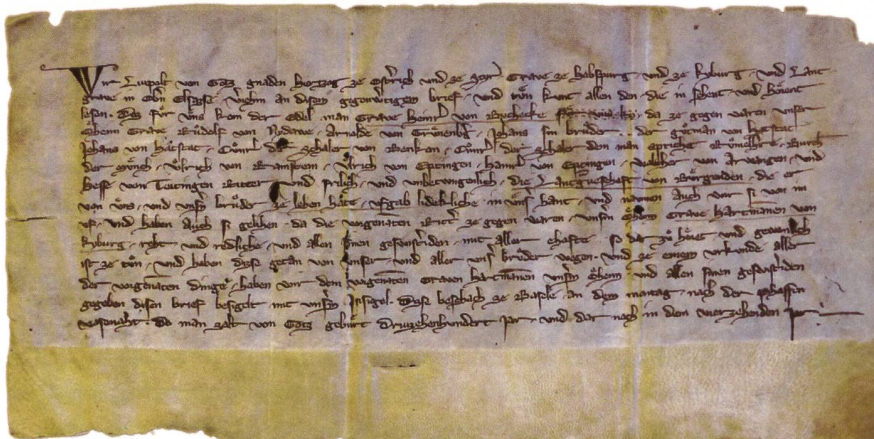 Wir Lupolt von Gotz gnaden Hertzog ze Osterich und ze Styr Grave ze Habspurg und ze Kyburg und Lant
grave in Obern Elsasse veriehin an disem gigenwurtigem brief und tun kunt allen den die in sehent und hoerent
lesen Daz fur uns kam der Edel man Grave Heinrich von da ze gegen waren unser
Oheim Grave Rudolf von Nydowe Arnolde von Johans sin bruder der
Johans von Cunrat der Schaler von Cunrat der Schaler den man sprichet Burch
der Monch Ulrich von Ramstein Ulrich von Eptingen von Eptingen Walther von Arwangen und
Hesse von Tottingen Ritter und frilich und unbetwungenlich die Lantgrafschaft von Burgenden die er
von uns und unsern bruder ze lehen hatte ufgab lideklich in unser hant und namen auch wir si von im
uf und haben auch si gelihen da die vorgenanten Ritter ze gegen waren unserm Oheim Grave Hartmannen von
Kyburg reht und redliche und allen sinen geswistriden mit aller ehafte so dar zu horet und gewonlich
ist ze tun und haben daz getan von unser und aller unser bruder wegen und ze einem urkunde aller
der vorgenanten dinge haben wir dem vorgenanten Graven Hartmannen unserm Oheim und allen sinen geswistriden
gegeben disen brief besigelt mit unserm Insigel Daz beschach ze Basile an dem mantag nach der phaffen
vasenaht do man zalt von Gotz geburt Druzehenhundert jar und dar nach in dem vierzehenden jar